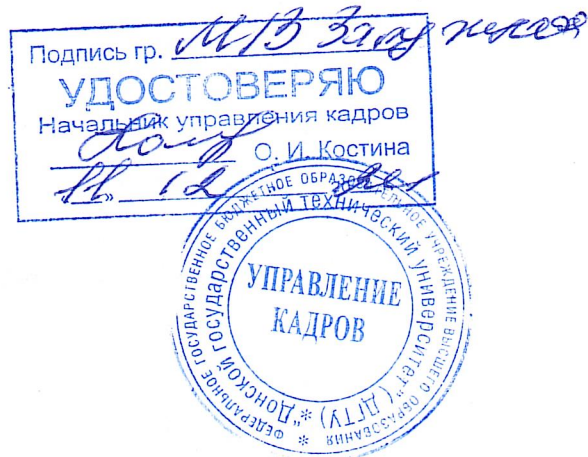 Подпись гр.
УДОСТОВЕРЯЮ
Начальник управления кадров
О. И. Костина
11. 12
ФЕДЕРАЛЬНОЕ ГОСУДАРСТВЕННОЕ БЮДЖЕТНОЕ ОБРАЗОВАТЕЛЬНОЕ УЧРЕЖДЕНИЕ ВЫСШЕГО ОБРАЗОВАНИЯ *
"Донской государственный технический университет" (ДГТУ) *
УПРАВЛЕНИЕ
КАДРОВ